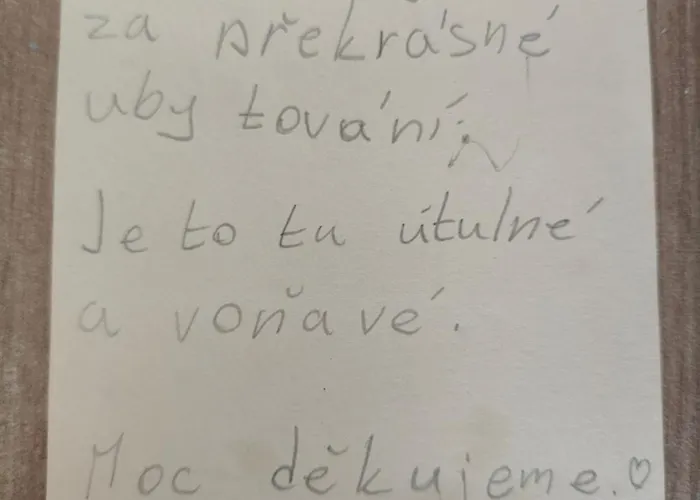 za překrásné
ubytování.
Je to tu útulné
a voňavé.
Moc děkujeme.♡